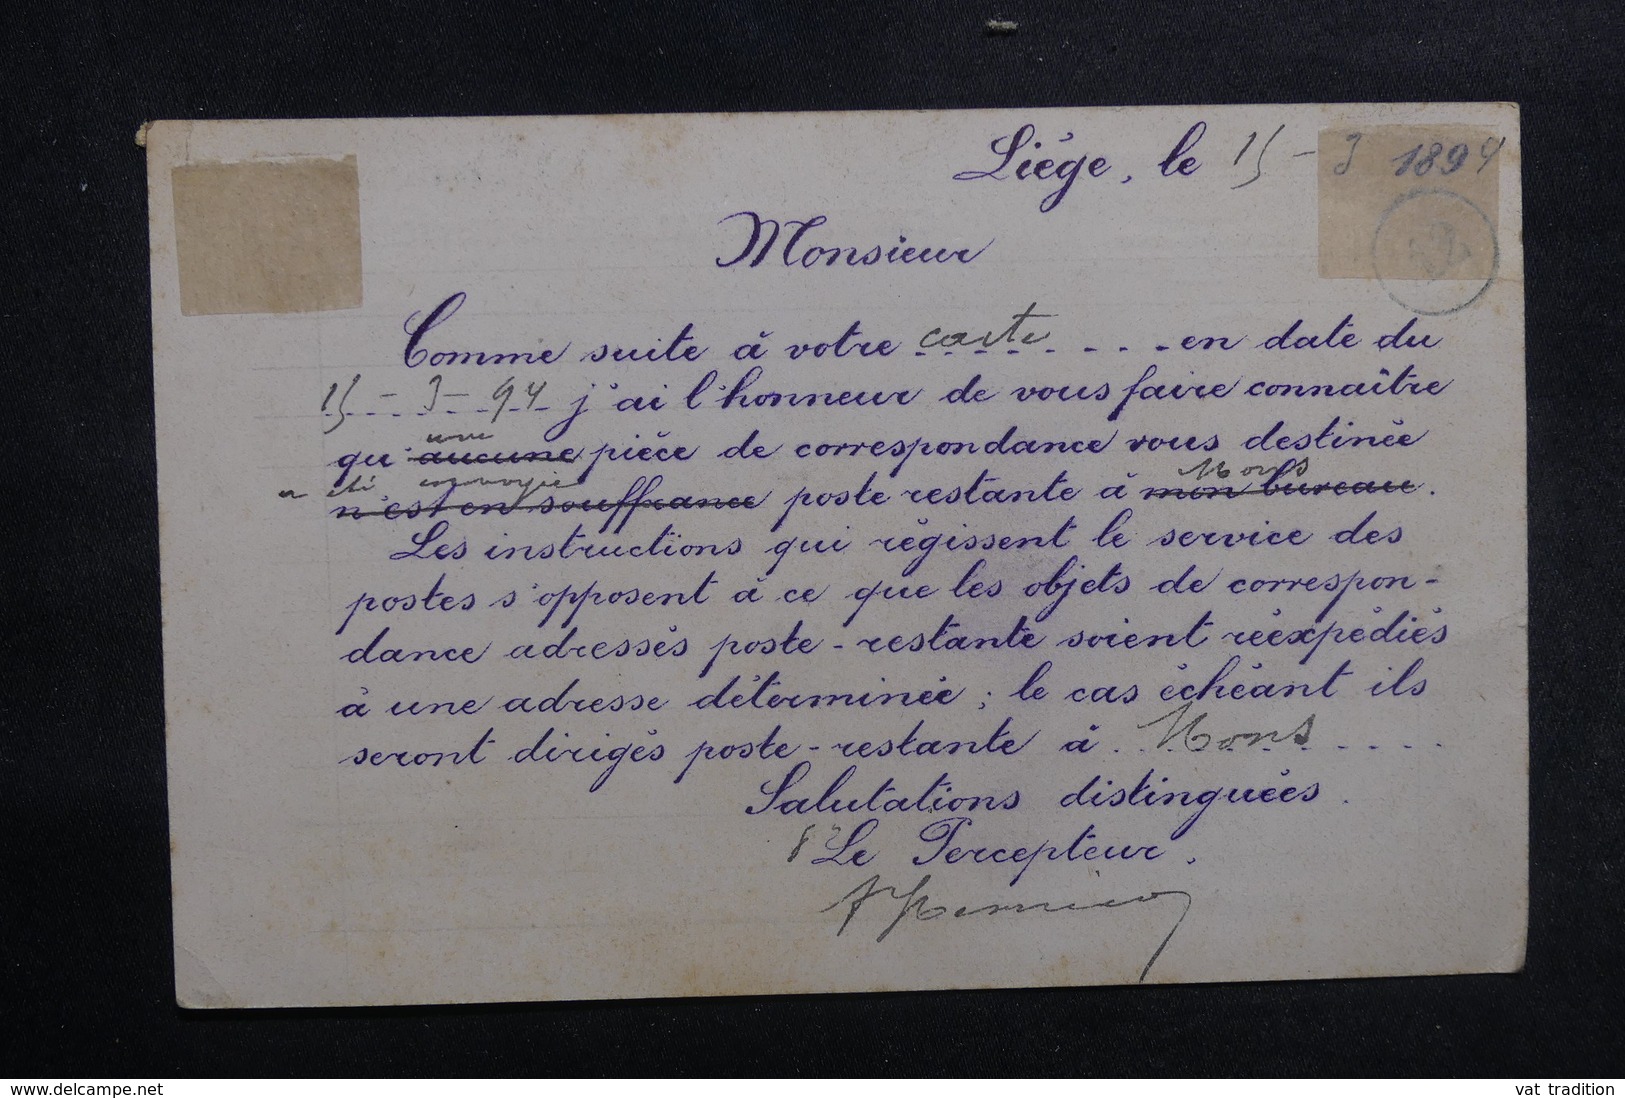 Liége, le 15 - 3 1894
Monsieur
Comme suite à votre carte en date du
15 - 3 - 94 j'ai l'honneur de vous faire connaître
une
qu'aucune pièce de correspondance vous destinée
a été envoyée Mons
n'est en souffrance poste restante à mon bureau.
Les instructions qui régissent le service des
postes s'opposent à ce que les objets de correspon-
dance adressés poste-restante soient réexpédiés
à une adresse déterminée ; le cas échéant ils
seront dirigés poste-restante à Mons
Salutations distinguées.
Le Percepteur.
www.delcampe.net
vat tradition